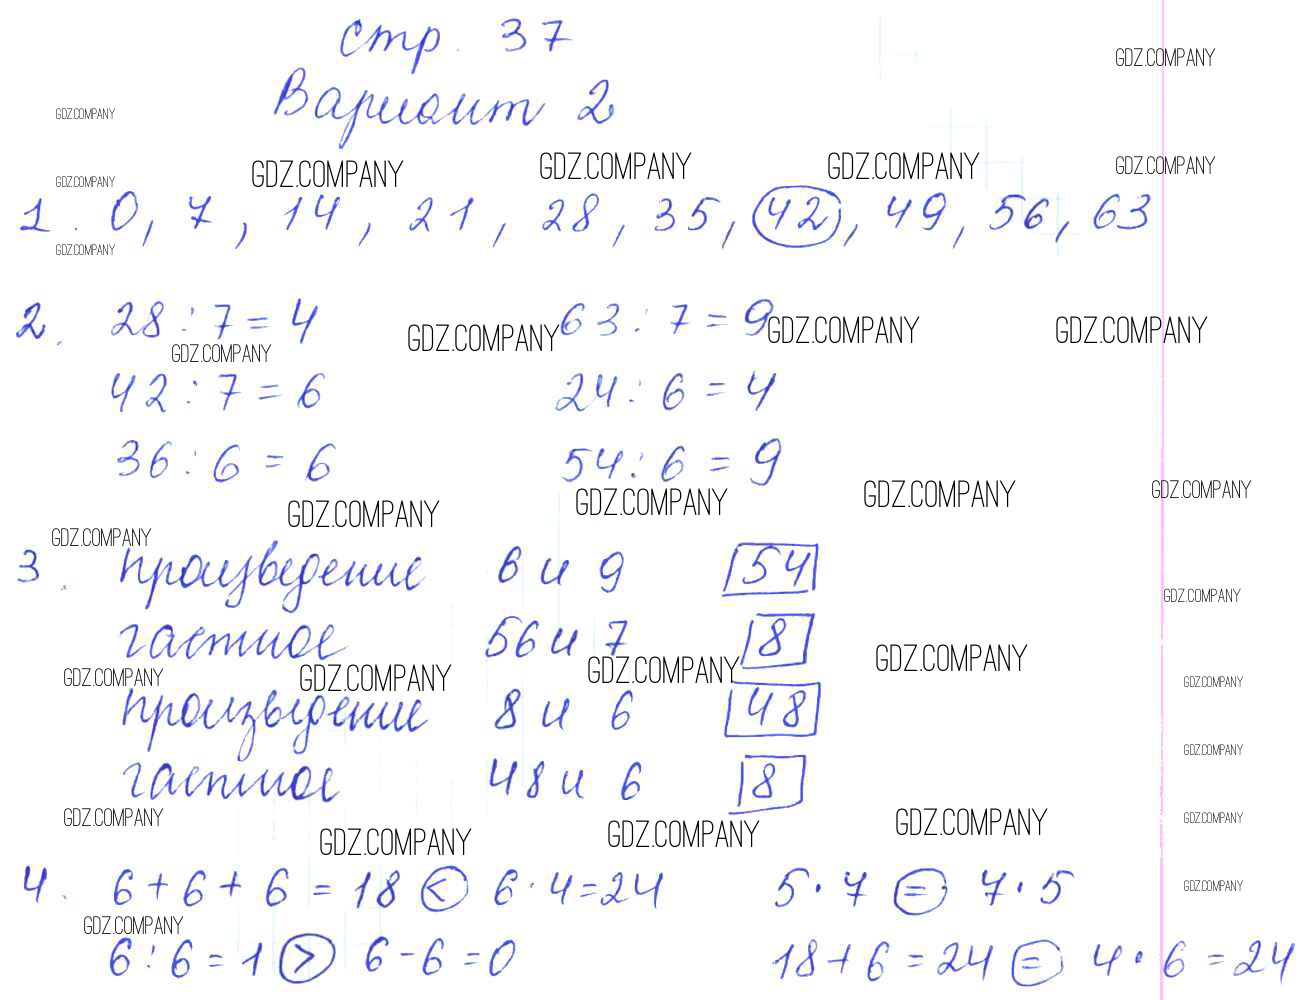 стр. 37
Вариант 2
1. 0, 7, 14, 21, 28, 35, 42, 49, 56, 63
2. 28 : 7 = 4 63 : 7 = 9
42 : 7 = 6 24 : 6 = 4
36 : 6 = 6 54 : 6 = 9
3. произведение 6 и 9 54
частное 56 и 7 8
произведение 8 и 6 48
частное 48 и 6 8
4. 6 + 6 + 6 = 18 < 6 · 4 = 24 5 · 7 = 7 · 5
6 : 6 = 1 > 6 - 6 = 0 18 + 6 = 24 = 4 · 6 = 24
GDZ.COMPANY